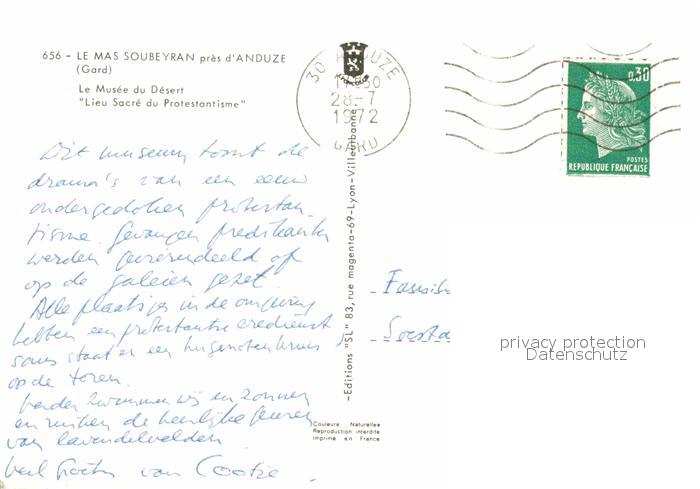 656 – LE MAS SOUBEYRAN près d'ANDUZE
(Gard)
Le Musée du Désert
"Lieu Sacré du Protestantisme"
30 ANDUZE
28-7
1972
GARD
0,30
POSTES
REPUBLIQUE FRANÇAISE
Dit museum toont de
drama's van een eeuw
ondergedoken protestan-
tisme. Gevangen predikanten
werden geviereendeeld of
op de galeien gezet.
Alle plaatsjes in de omgeving
hebben een protestantse eredienst,
soms staat er een hugenotenkruis
op de toren.
Verder zwemmen wij en zonnen
en ruiken de heerlijke geuren
van lavendelvelden.
Veel groeten van Cootje.
-Editions "SL" 83, rue magenta-69-Lyon-Villeurbanne-
Couleurs Naturelles
Reproduction interdite
imprimé en France
privacy protection
Datenschutz